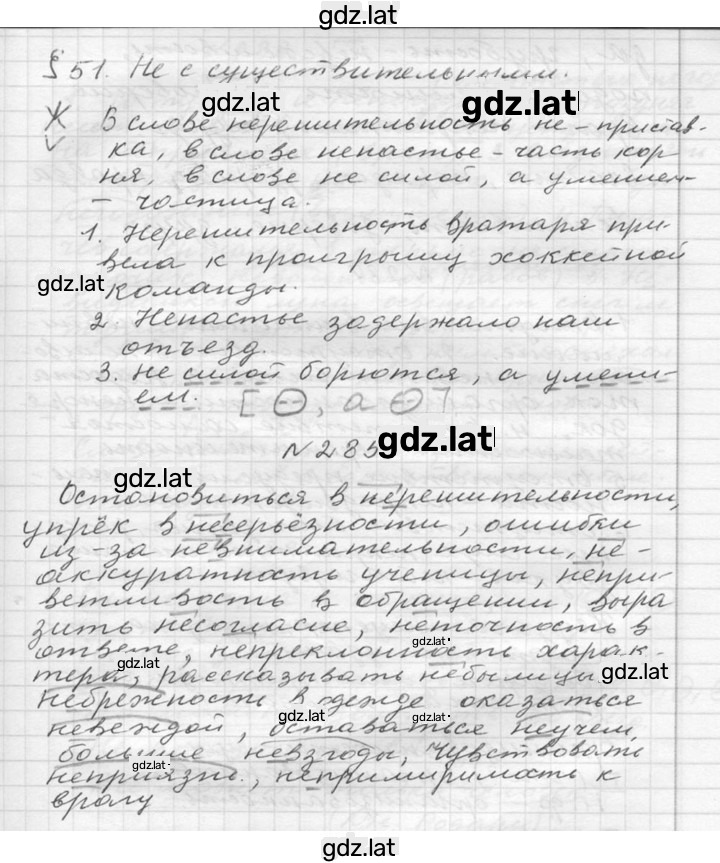 gdz.lat
§ 51. Не с существительными.
gdz.lat gdz.lat
Ж В слове нерешительность не - пристав-
ка, в слове ненастье - часть кор
ня, в слове не силой, а умением-
- частица.
1. Нерешительность вратаря при-
вела к проигрышу хоккейной
gdz.lat команды.
2. Ненастье задержало наш
отъезд.
3. Не силой борются, а умени-
ем. [ , а ]
N 285 gdz.lat
Остановиться в нерешительности,
упрёк в несерьёзности, ошибки
из-за невнимательности, не-
аккуратность ученицы, непри-
ветливость в обращении, выра
зить несогласие, неточность в
ответе, непреклонность харак- gdz.lat
тера, рассказывать небылицы gdz.lat gdz.lat
небрежность в одежде оказаться
невеждой, оставаться неучем, gdz.lat gdz.lat
большие невзгоды, чувствовать
неприязнь, непримиримость к gdz.lat
врагу
gdz.lat